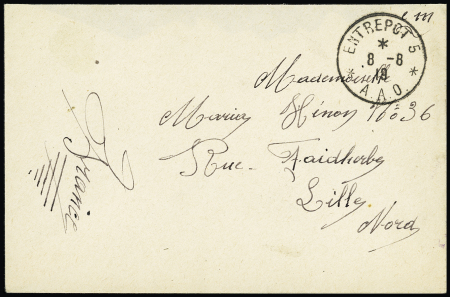 F M
ENTREPOT 5
8 -8
19
* A.A.O. *
Mademoiselle
Maria Hénon N° 36
Rue Faidherbe
Lille
Nord
France